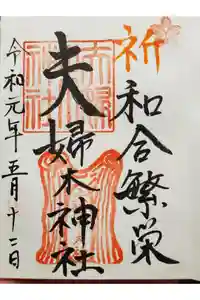 祈
和合繁栄
夫婦木神社
令和元年五月十二日